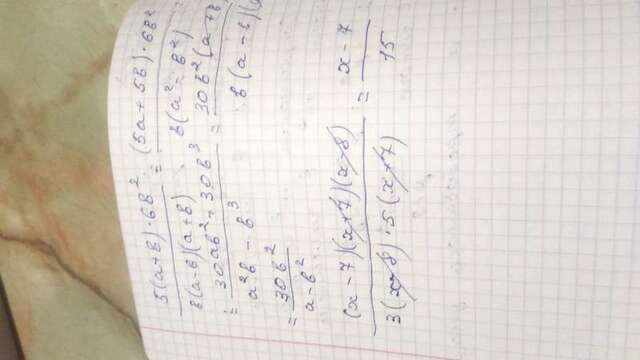 5(a+b)·6b² / b(a-b)(a+b) = (5a+5b)·6b² / b(a²-b²)
= 30ab²+30b³ / a²b-b³ = 30b²(a+b) / b(a-b)(
= 30b² / a-b²
(x-7)(x+7)(x-8) / 3(x-8)·5(x+7) = x-7 / 15